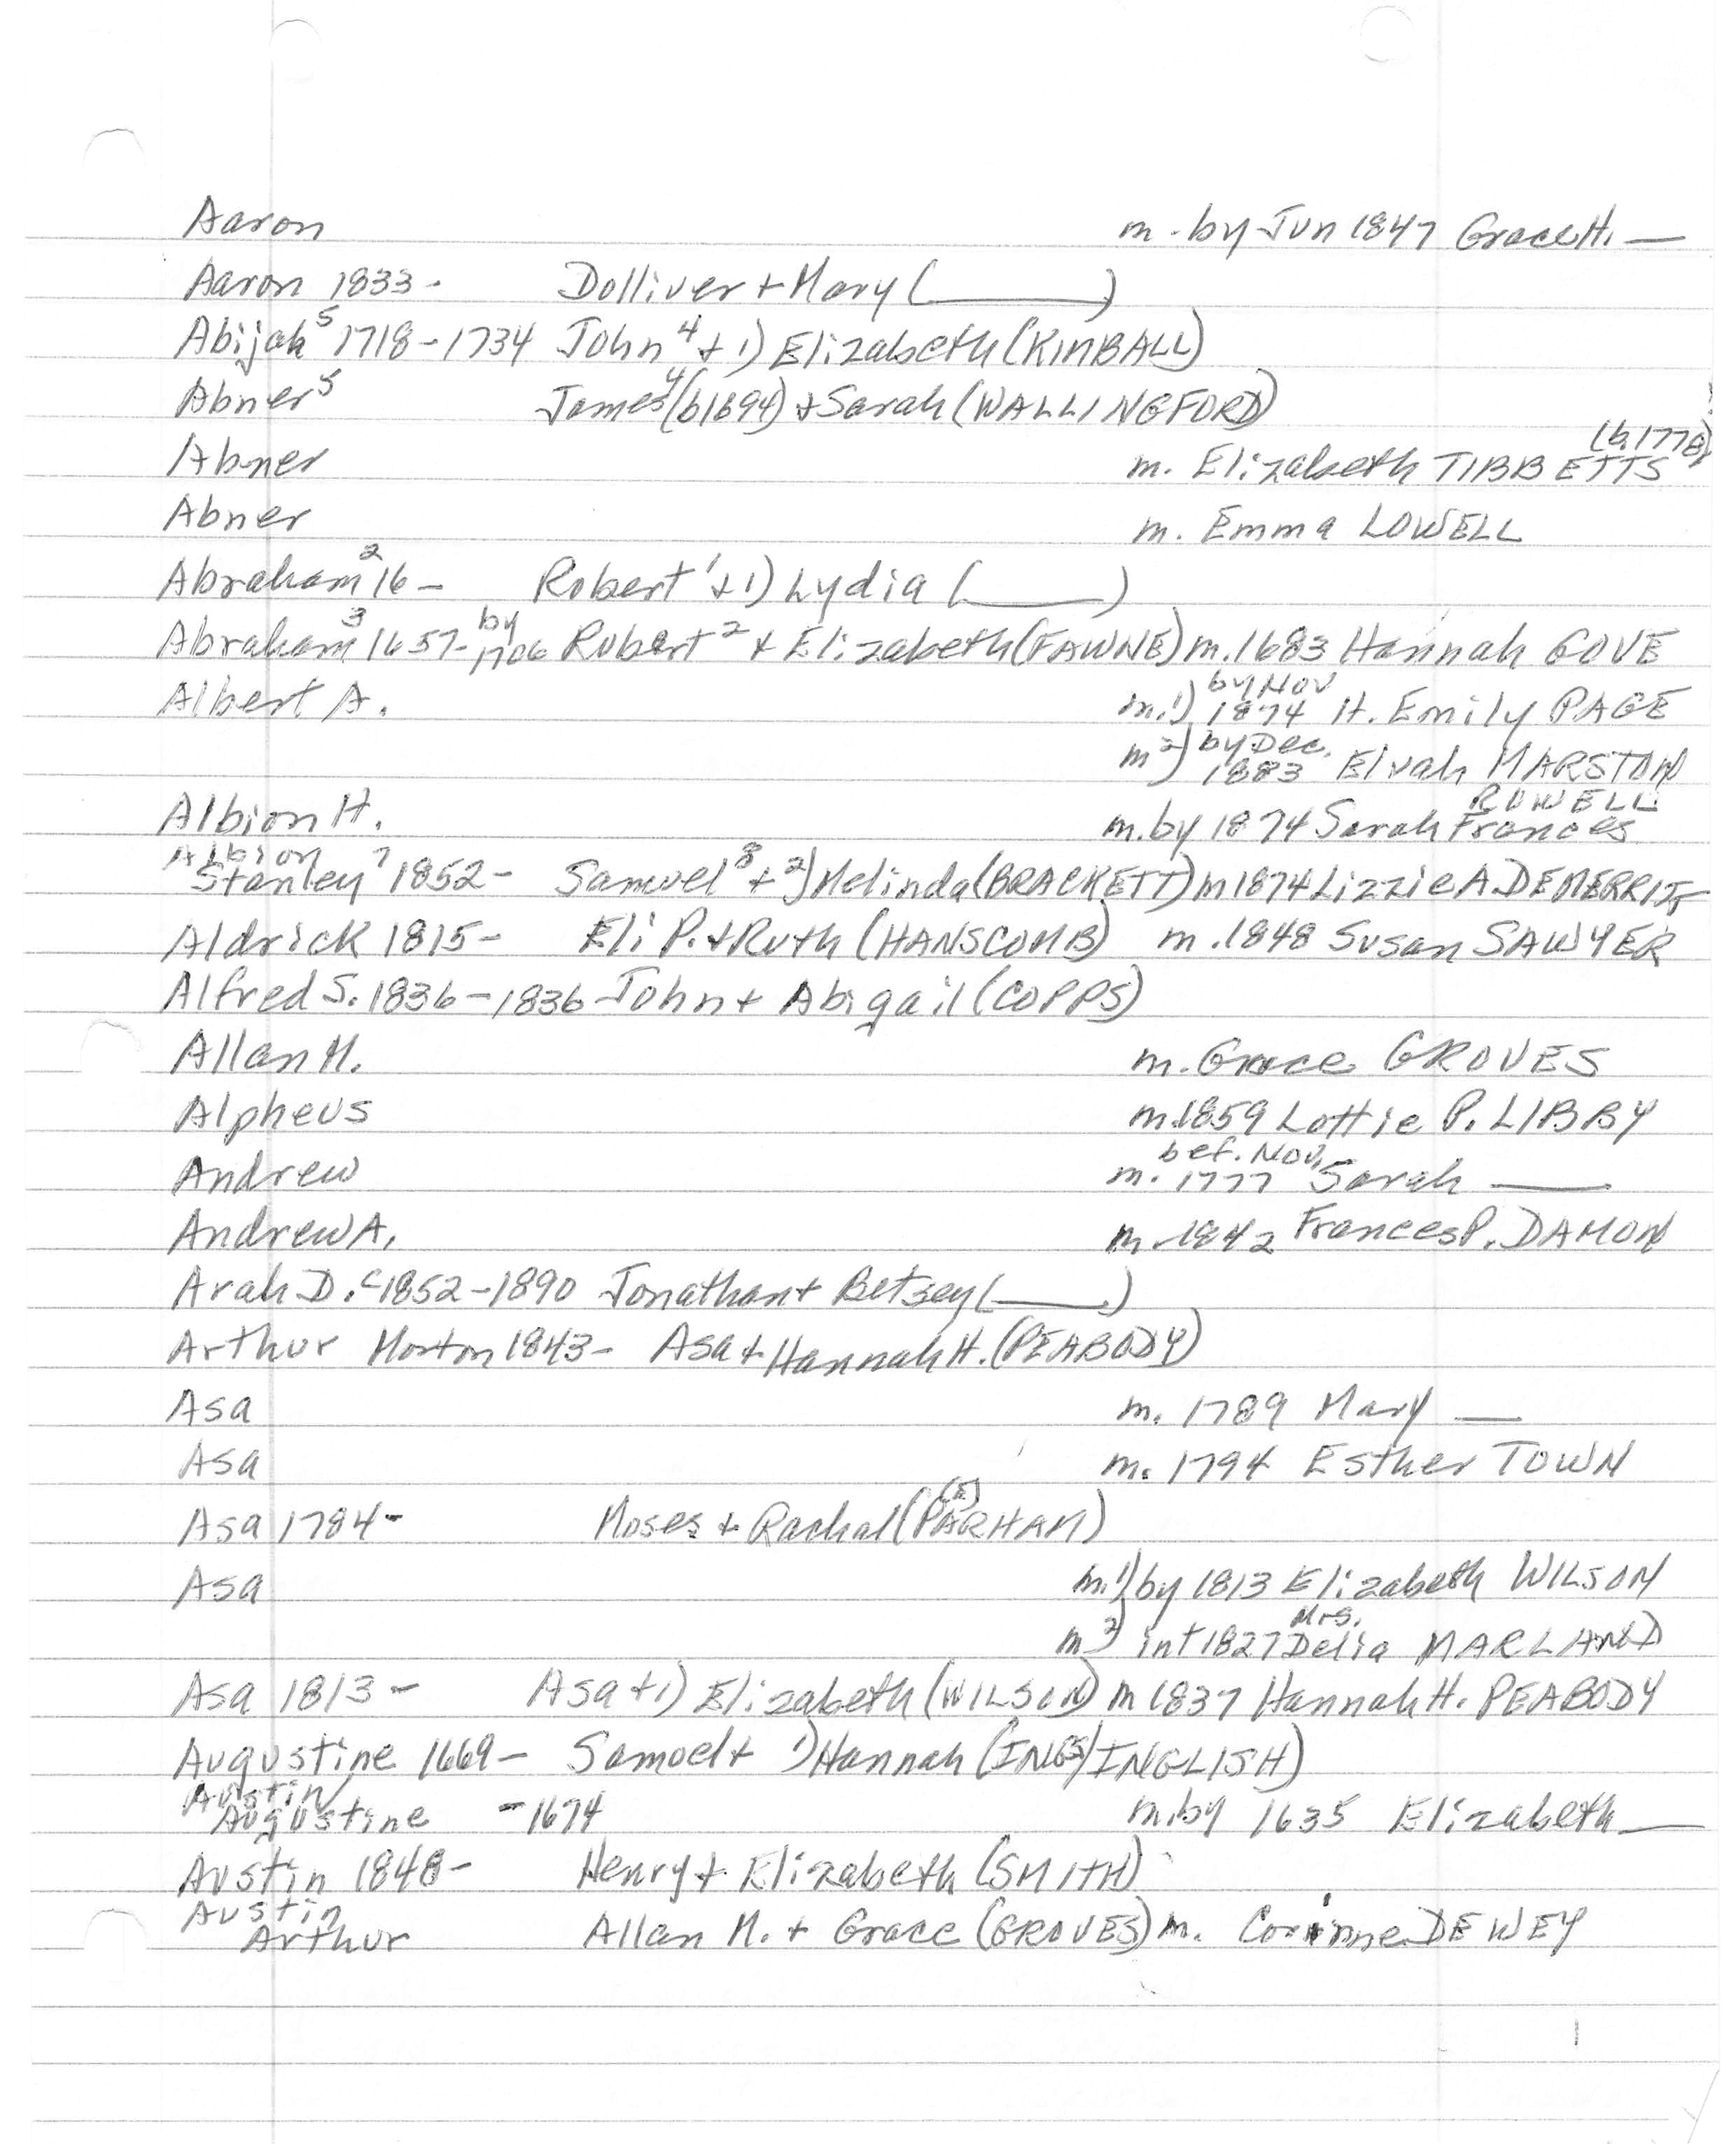 Aaron m. by Jun 1847 Grace H. —
Aaron 1833- Dolliver + Mary (______)
Abijah⁵ 1718-1734 John⁴ + 1) Elizabeth (KIMBALL)
Abner⁵ James⁴ (b1694) + Sarah (WALLINGFORD)
Abner m. Elizabeth TIBBETTS (b.1778)
Abner m. Emma LOWELL
Abraham² 16- Robert¹ + 1) Lydia (______)
Abraham³ 1657- by 1706 Robert² + Elizabeth (FAWNE) m. 1683 Hannah GOVE
Albert A. m. 1) by Nov 1874 H. Emily PAGE
m 2) by Dec. 1883 Elvah MARSTON
Albion H. m. by 1874 Sarah Frances ROWELL
Albion Stanley⁷ 1852- Samuel⁸ + 2) Melinda (BRACKETT) m 1874 Lizzie A. DEMERRITT
Aldrick 1815- Eli P. + Ruth (HANSCOMB) m. 1848 Susan SAWYER
Alfred S. 1836-1836 John + Abigail (COPPS)
Allan M. m. Grace GROVES
Alpheus m. 1859 Lottie P. LIBBY
Andrew m. bef. Nov. 1777 Sarah ____
Andrew A. m. 1842 Frances P. DAMON
Arah D. c1852-1890 Jonathan + Betsey (______)
Arthur Morton 1843- Asa + Hannah H. (PEABODY)
Asa m. 1789 Mary —
Asa m. 1794 Esther TOWN
Asa 1784- Moses + Rachal (PARHAM)
Asa m. 1) by 1813 Elizabeth WILSON
m 2) int 1827 Mrs. Delia MARLAND
Asa 1813- Asa + 1) Elizabeth (WILSON) m 1837 Hannah H. PEABODY
Augustine 1669- Samuel + 1) Hannah (INGS/INGLISH)
Austin/ Augustine -1674 m. by 1635 Elizabeth ___
Austin 1848- Henry + Elizabeth (SMITH)
Austin Arthur Allan M. + Grace (GROVES) m. Corinne DEWEY
1